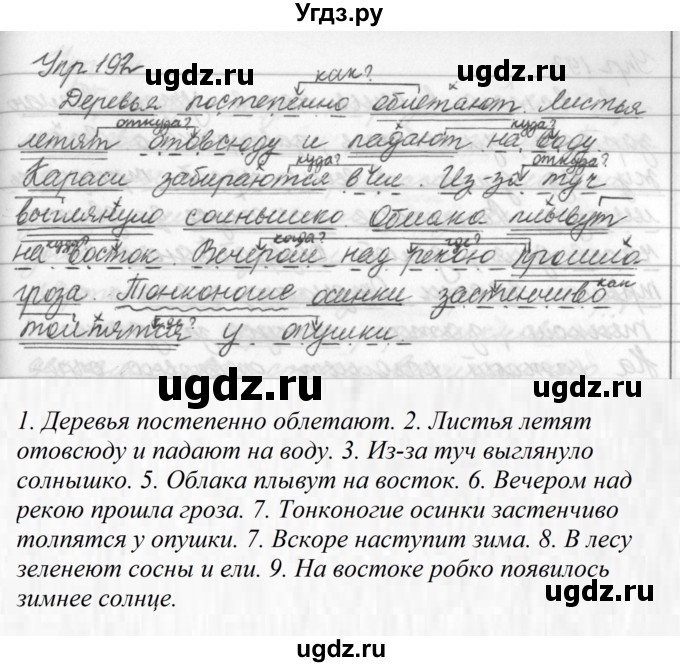 Угдз.ру
Упр 192
как?
Деревья постепенно облетают. Листья
откуда? куда?
летят отовсюду и падают на воду.
куда? откуда?
Караси забираются в ил. Из-за туч
выглянуло солнышко Облака плывут
куда? когда? где?
на восток Вечером над рекою прошла
как
гроза. Тонконогие осинки застенчиво
толпятся у опушки.
ugdz.ru ugdz.ru
ugdz.ru ugdz.ru
ugdz.ru ugdz.ru
ugdz.ru ugdz.ru
ugdz.ru ugdz.ru
1. Деревья постепенно облетают. 2. Листья летят
отовсюду и падают на воду. 3. Из-за туч выглянуло
солнышко. 5. Облака плывут на восток. 6. Вечером над
рекою прошла гроза. 7. Тонконогие осинки застенчиво
толпятся у опушки. 7. Вскоре наступит зима. 8. В лесу
зеленеют сосны и ели. 9. На востоке робко появилось
зимнее солнце.
ugdz.ru
ugdz.ru
ugdz.ru